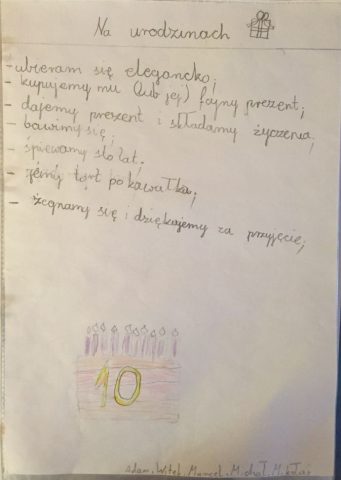 Na urodzinach
- ubieram się elegancko;
- kupujemy mu (lub jej) fajny prezent;
- dajemy prezent i składamy życzenia;
- bawimy się;
- śpiewamy sto lat;
- jemy tort po kawałka;
- żegnamy się i dziękujemy za przyjęcie;
10
Adam, Witek, Marcel, Michał, Mikołaj